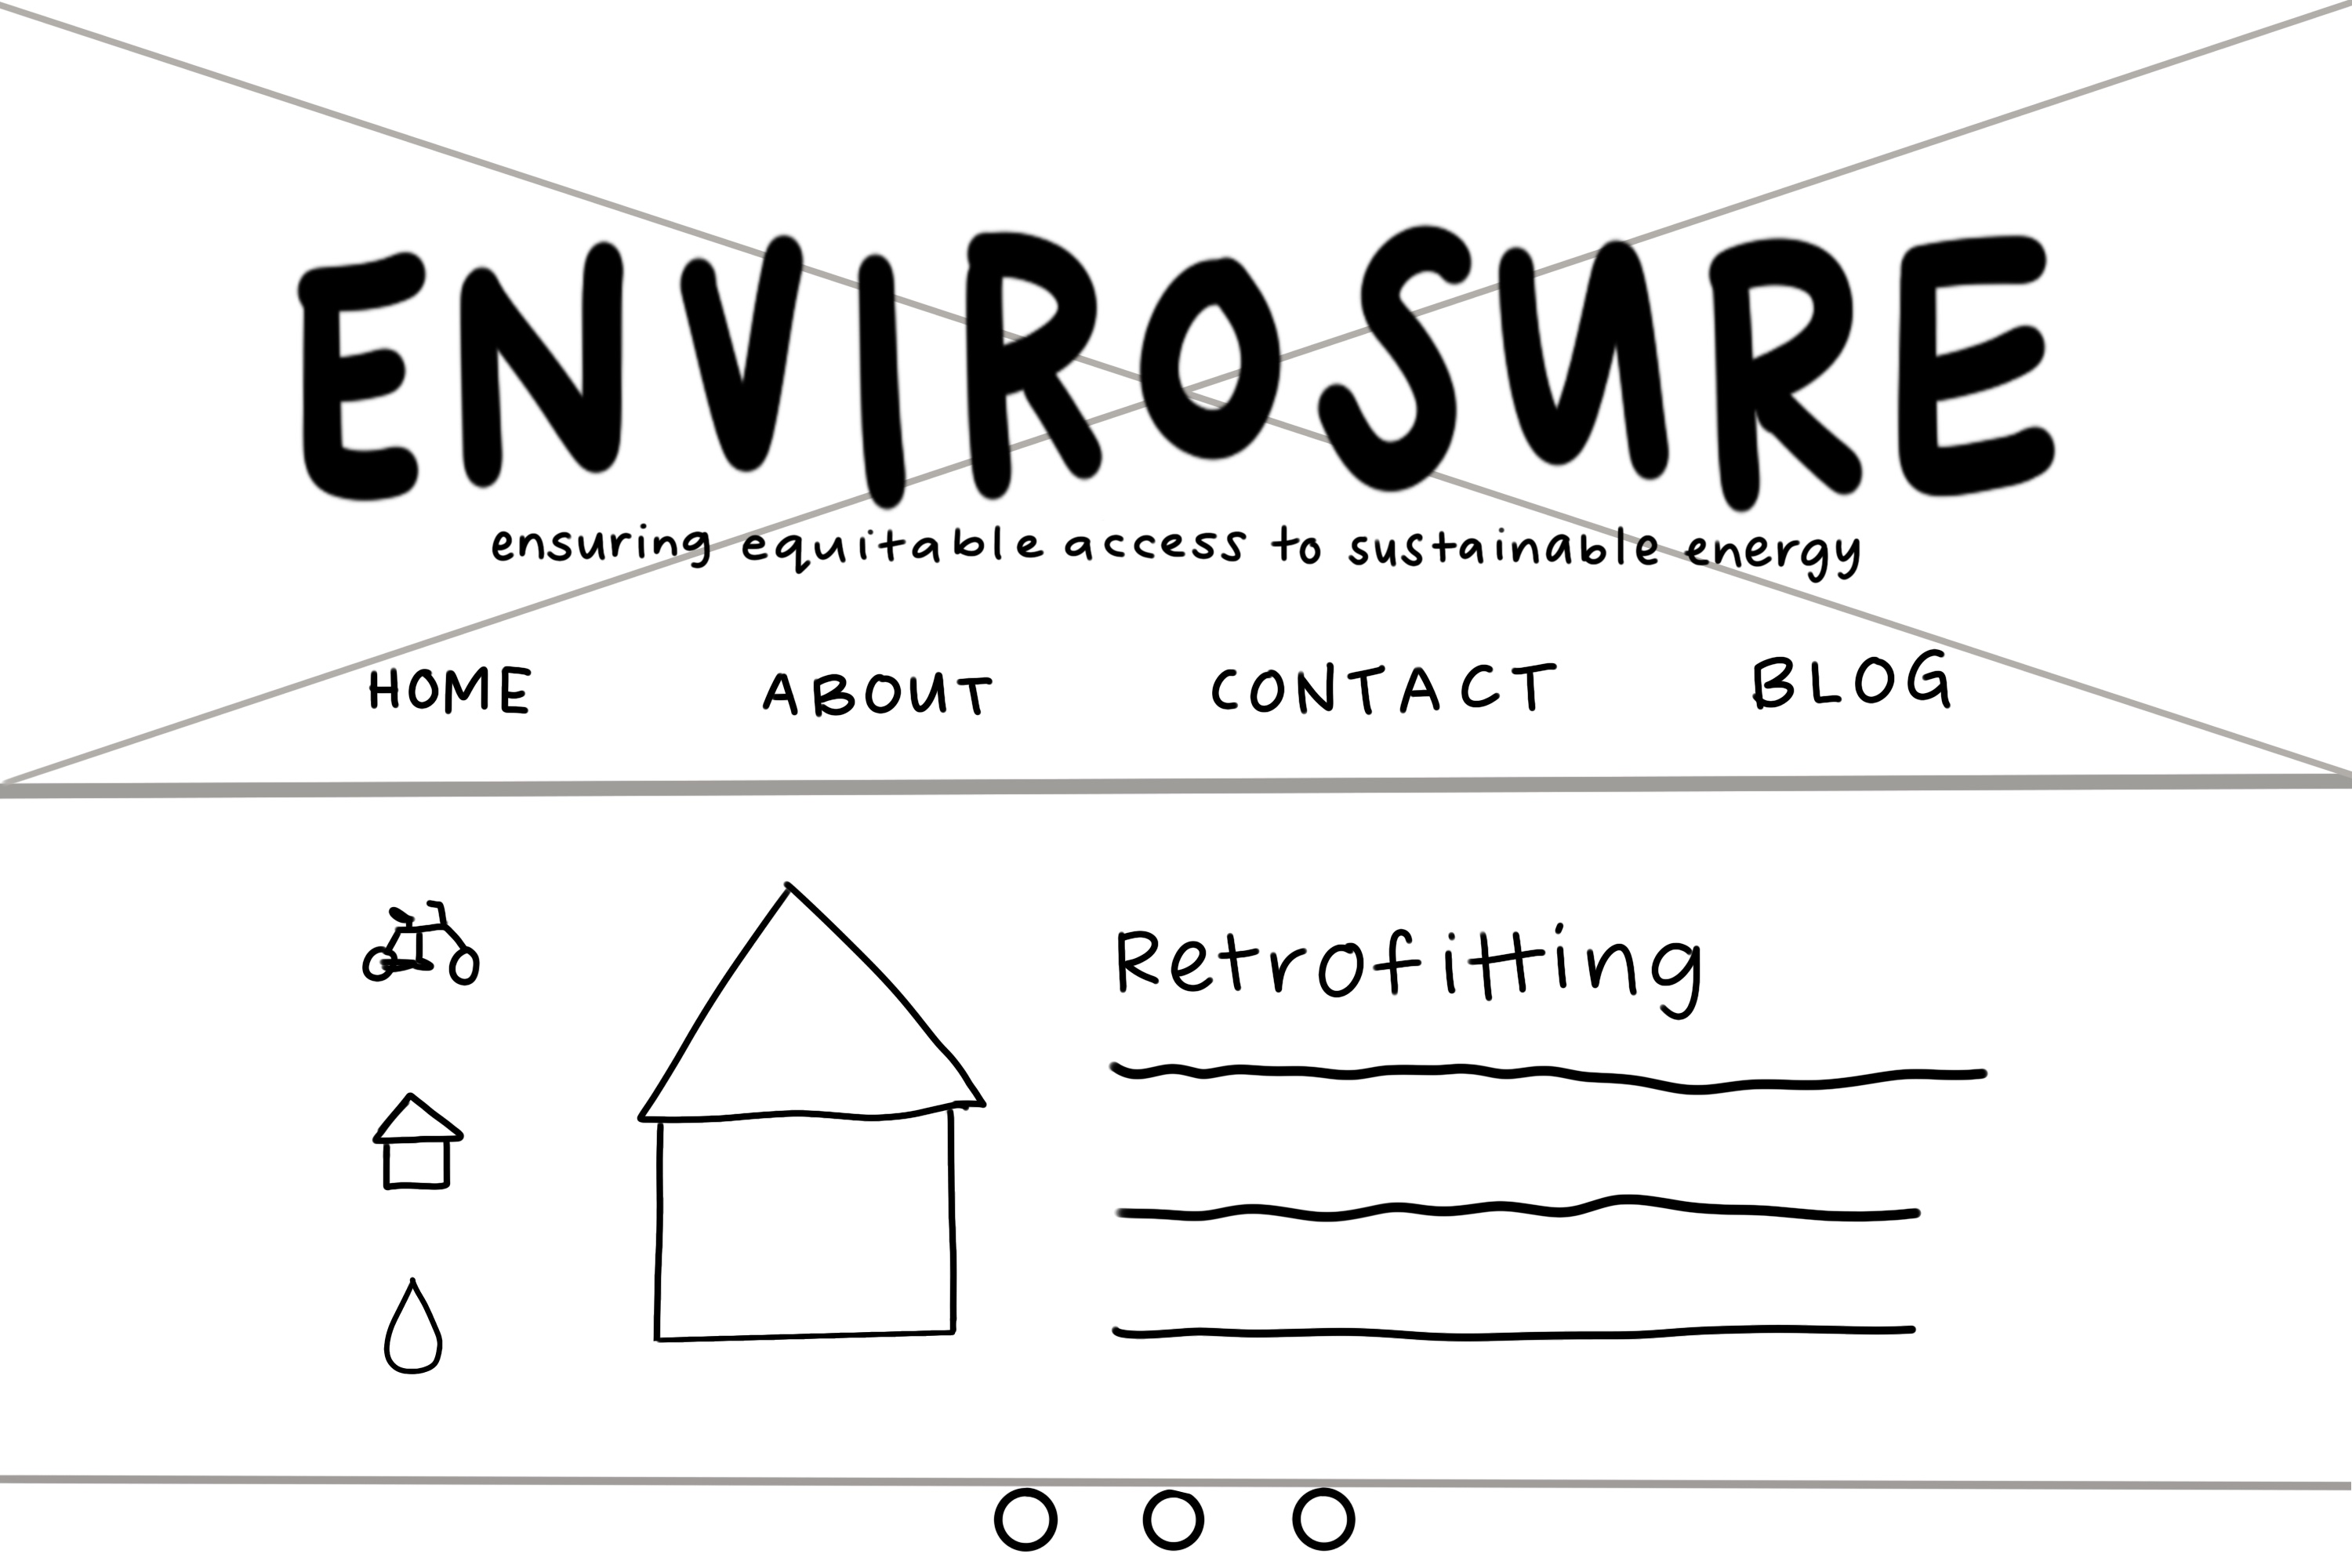 ENVIROSURE
ensuring equitable access to sustainable energy
HOME ABOUT CONTACT BLOG
Retrofitting